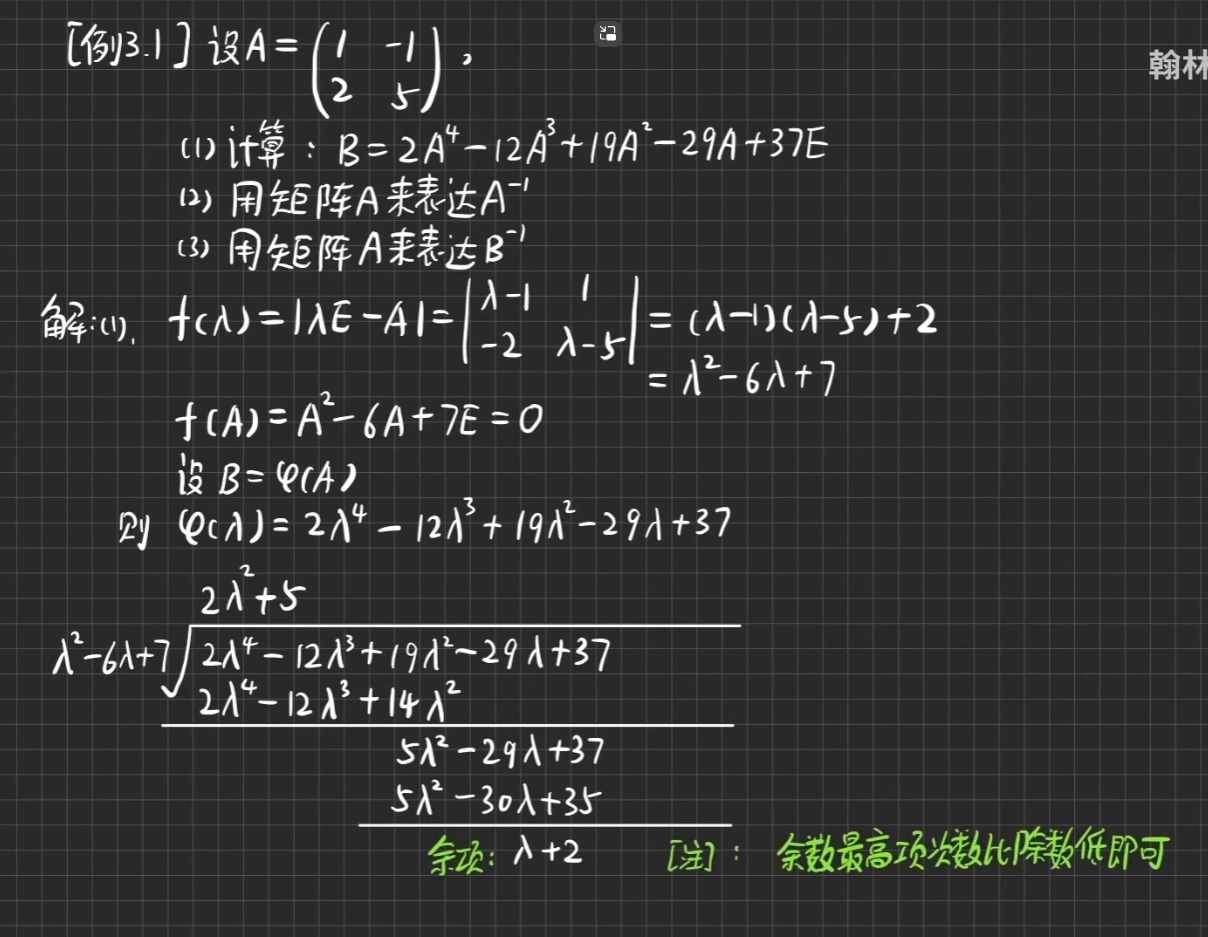 [例3.1] 设A = (1 -1
2 5),
翰林
(1) 计算：B = 2A⁴ - 12A³ + 19A² - 29A + 37E
(2) 用矩阵A来表达A⁻¹
(3) 用矩阵A来表达B⁻¹
解：(1). f(λ) = |λE - A| = |λ-1 1
-2 λ-5| = (λ-1)(λ-5)+2
= λ² - 6λ + 7
f(A) = A² - 6A + 7E = 0
设 B = φ(A)
则 φ(λ) = 2λ⁴ - 12λ³ + 19λ² - 29λ + 37
2λ² + 5
λ² - 6λ + 7 √ 2λ⁴ - 12λ³ + 19λ² - 29λ + 37
2λ⁴ - 12λ³ + 14λ²
5λ² - 29λ + 37
5λ² - 30λ + 35
余项：λ + 2 [注]： 余数最高项次数比除数低即可